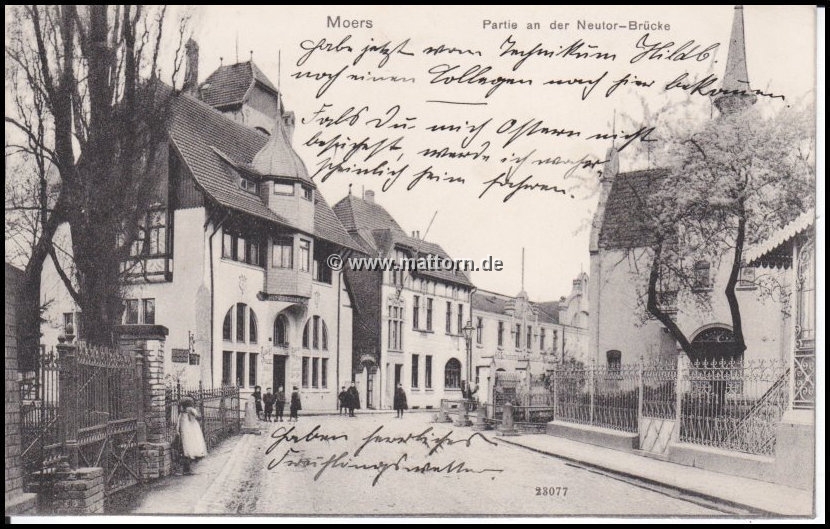 Moers
Partie an der Neutor-Brücke
Habe jetzt vom Technikum Hildb.
noch einen Collegen nach hier bekommen.
Falls Du mich Ostern nicht
besuchst, werde ich wahr-
scheinlich heim fahren.
© www.mattorn.de
Haben herrliches
Frühlingswetter
23077